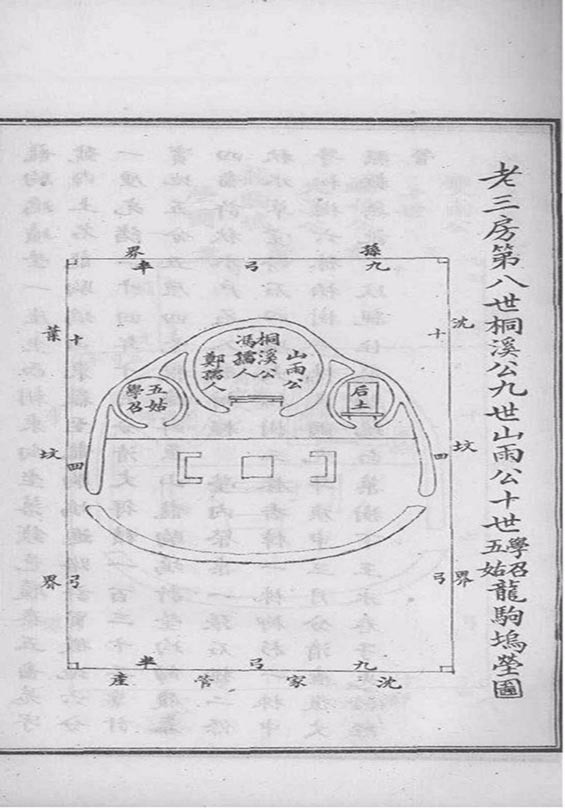 老三房第八世桐溪公九世山雨公十世學召五姑龍駒塢塋圖
孫界
九弓半
沈坟界
十四弓
山雨公
桐溪公
馮孺人
鄭孺人
后土
五姑
學召
葉坟界
十四弓
九弓半
沈家管產